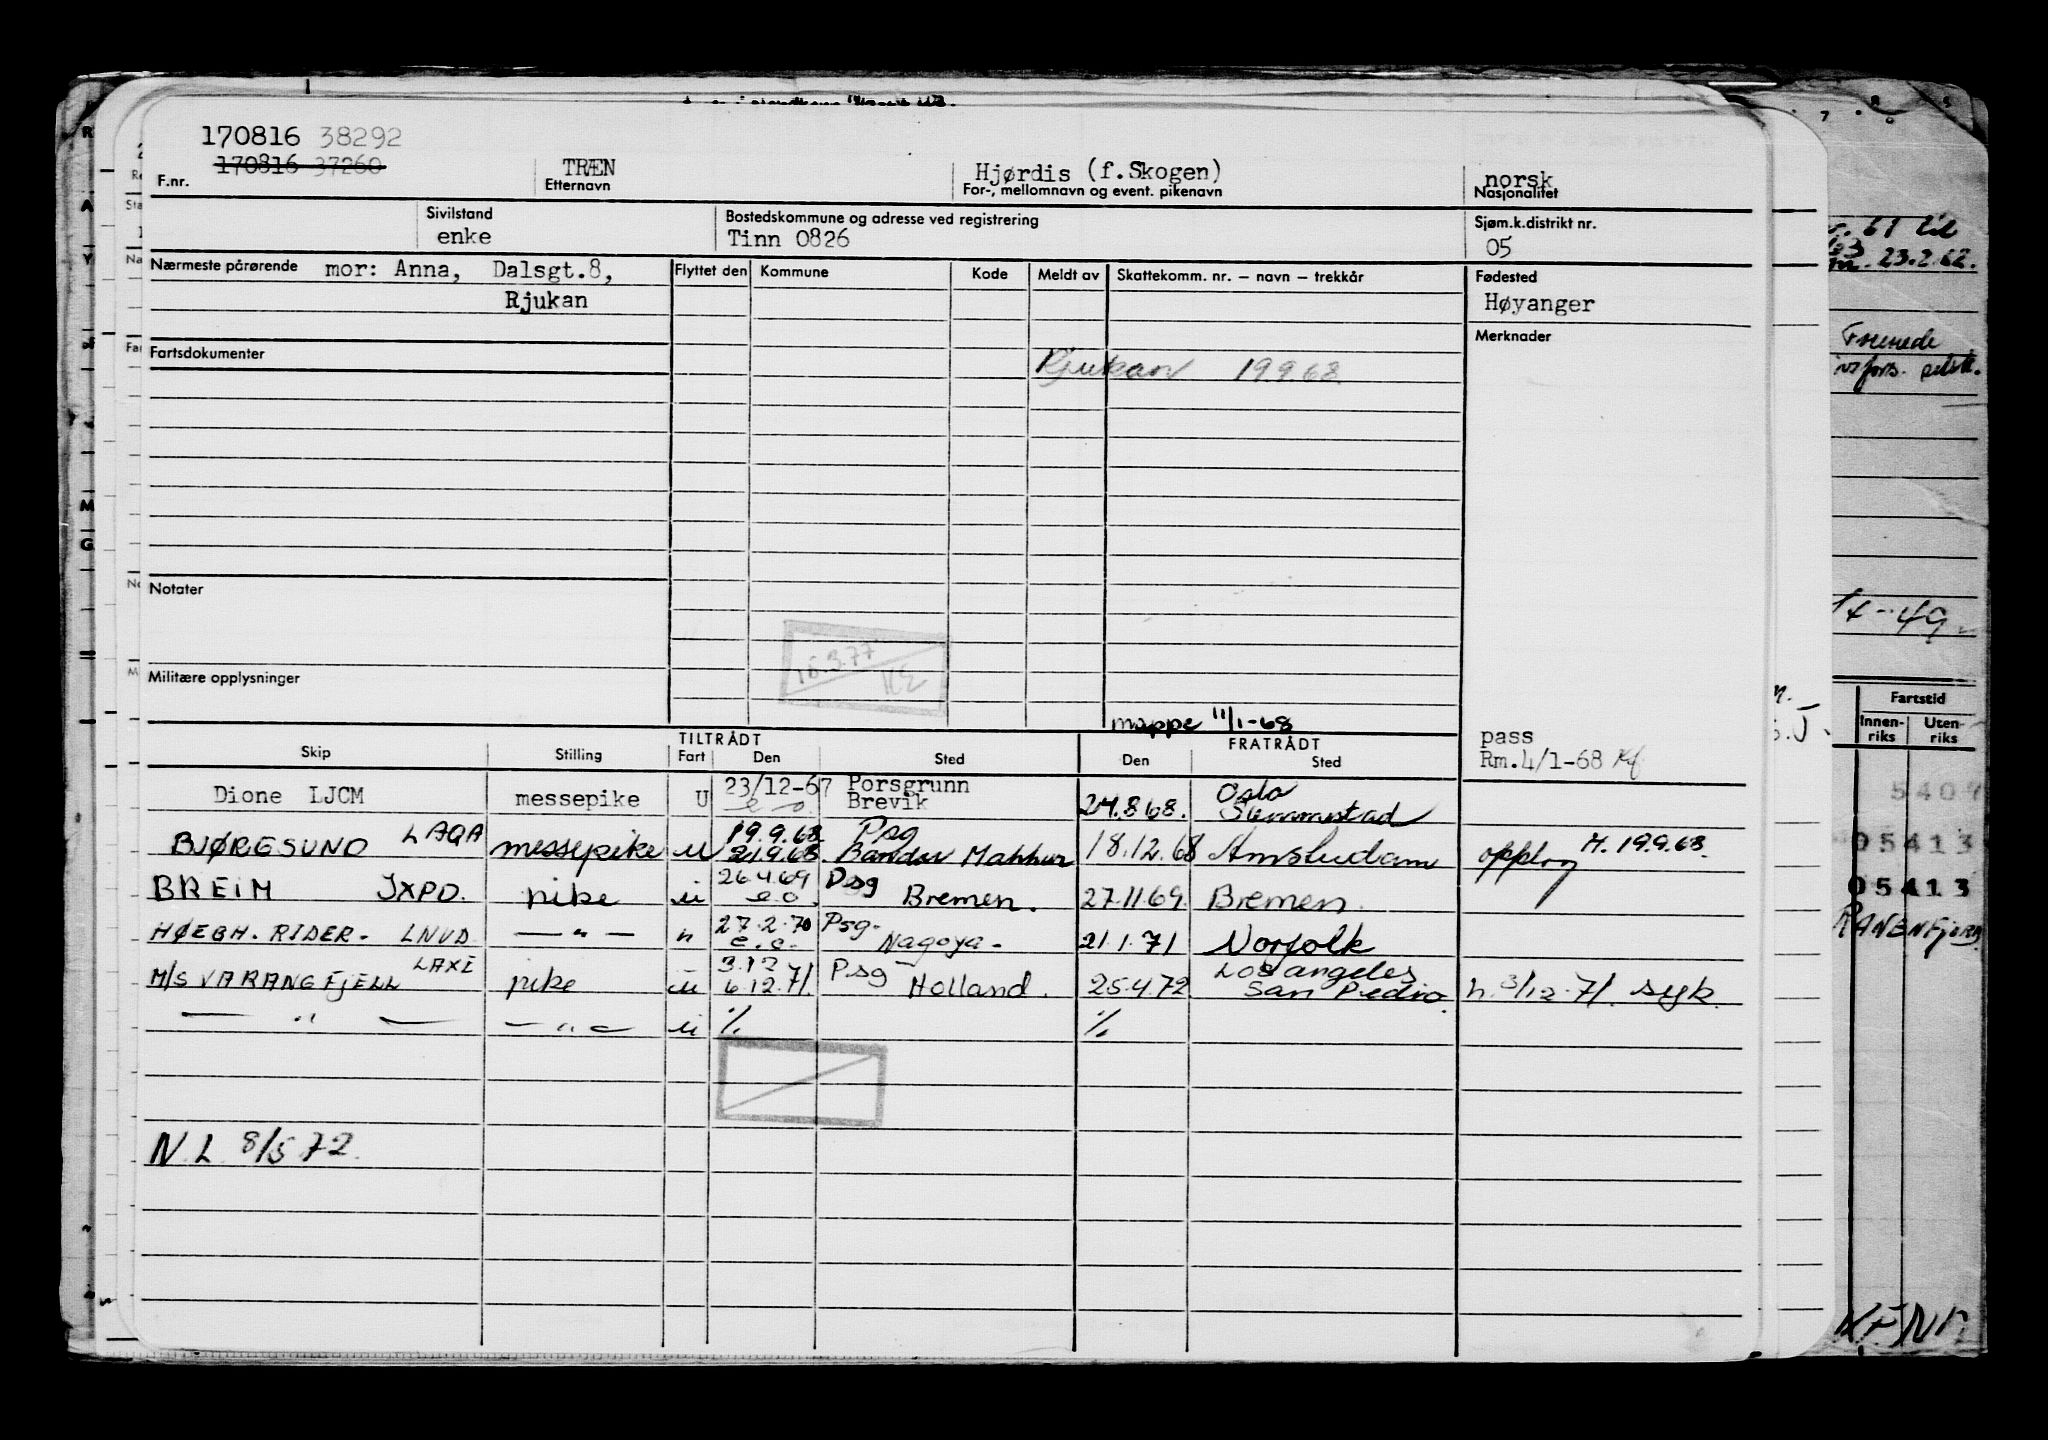 170816 38292
170816 37260
F.nr.
TRÆN
Etternavn
Hjørdis (f.Skogen)
For-, mellomnavn og event. pikenavn
norsk
Nasjonalitet
Sivilstand
enke
Bostedskommune og adresse ved registrering
Tinn 0826
Sjøm.k.distrikt nr.
05
Nærmeste pårørende mor: Anna, Dalsgt.8,
Rjukan
Flyttet den Kommune Kode Meldt av Skattekomm. nr. – navn – trekkår
Fødested
Høyanger
Merknader
Fartsdokumenter
Rjukan 19.9.68
Notater
16.3.77
Militære opplysninger
mappe 11/1-68
pass
Rm.4/1-68
TILTRÅDT FRATRÅDT
Skip Stilling Fart Den Sted Den Sted
Dione LJCM messepike U 23/12-67 Porsgrunn
e o Brevik 24.8.68. Oslo
Slemmestad
BJØRGSUND LAQA messepike u 19.9.68 Psg
21.9.68 Bandar Mahhur 18.12.68 Amsterdam opplag M. 19.9.68.
BREIM JXPD. pike u 26.4.69 Psg
e.o. Bremen. 27.11.69. Bremen.
HØEGH. RIDER. LNVD — " — " 27.2.70 Psg.
e.o. Nagoya. 21.1.71 Norfolk
M/S VARANGFJELL LAXE pike u 3.12
6.12.71. Psg Holland. 25.4.72. Los angeles
San Pedro. h. 3/12.71. syk.
— " — — " — u % %
N.L. 8/5 72.
61 til
23.2.62.
4-49.
Fartstid
Innen-
riks
Uten-
riks
5404
05413
05413
RANENFJORD